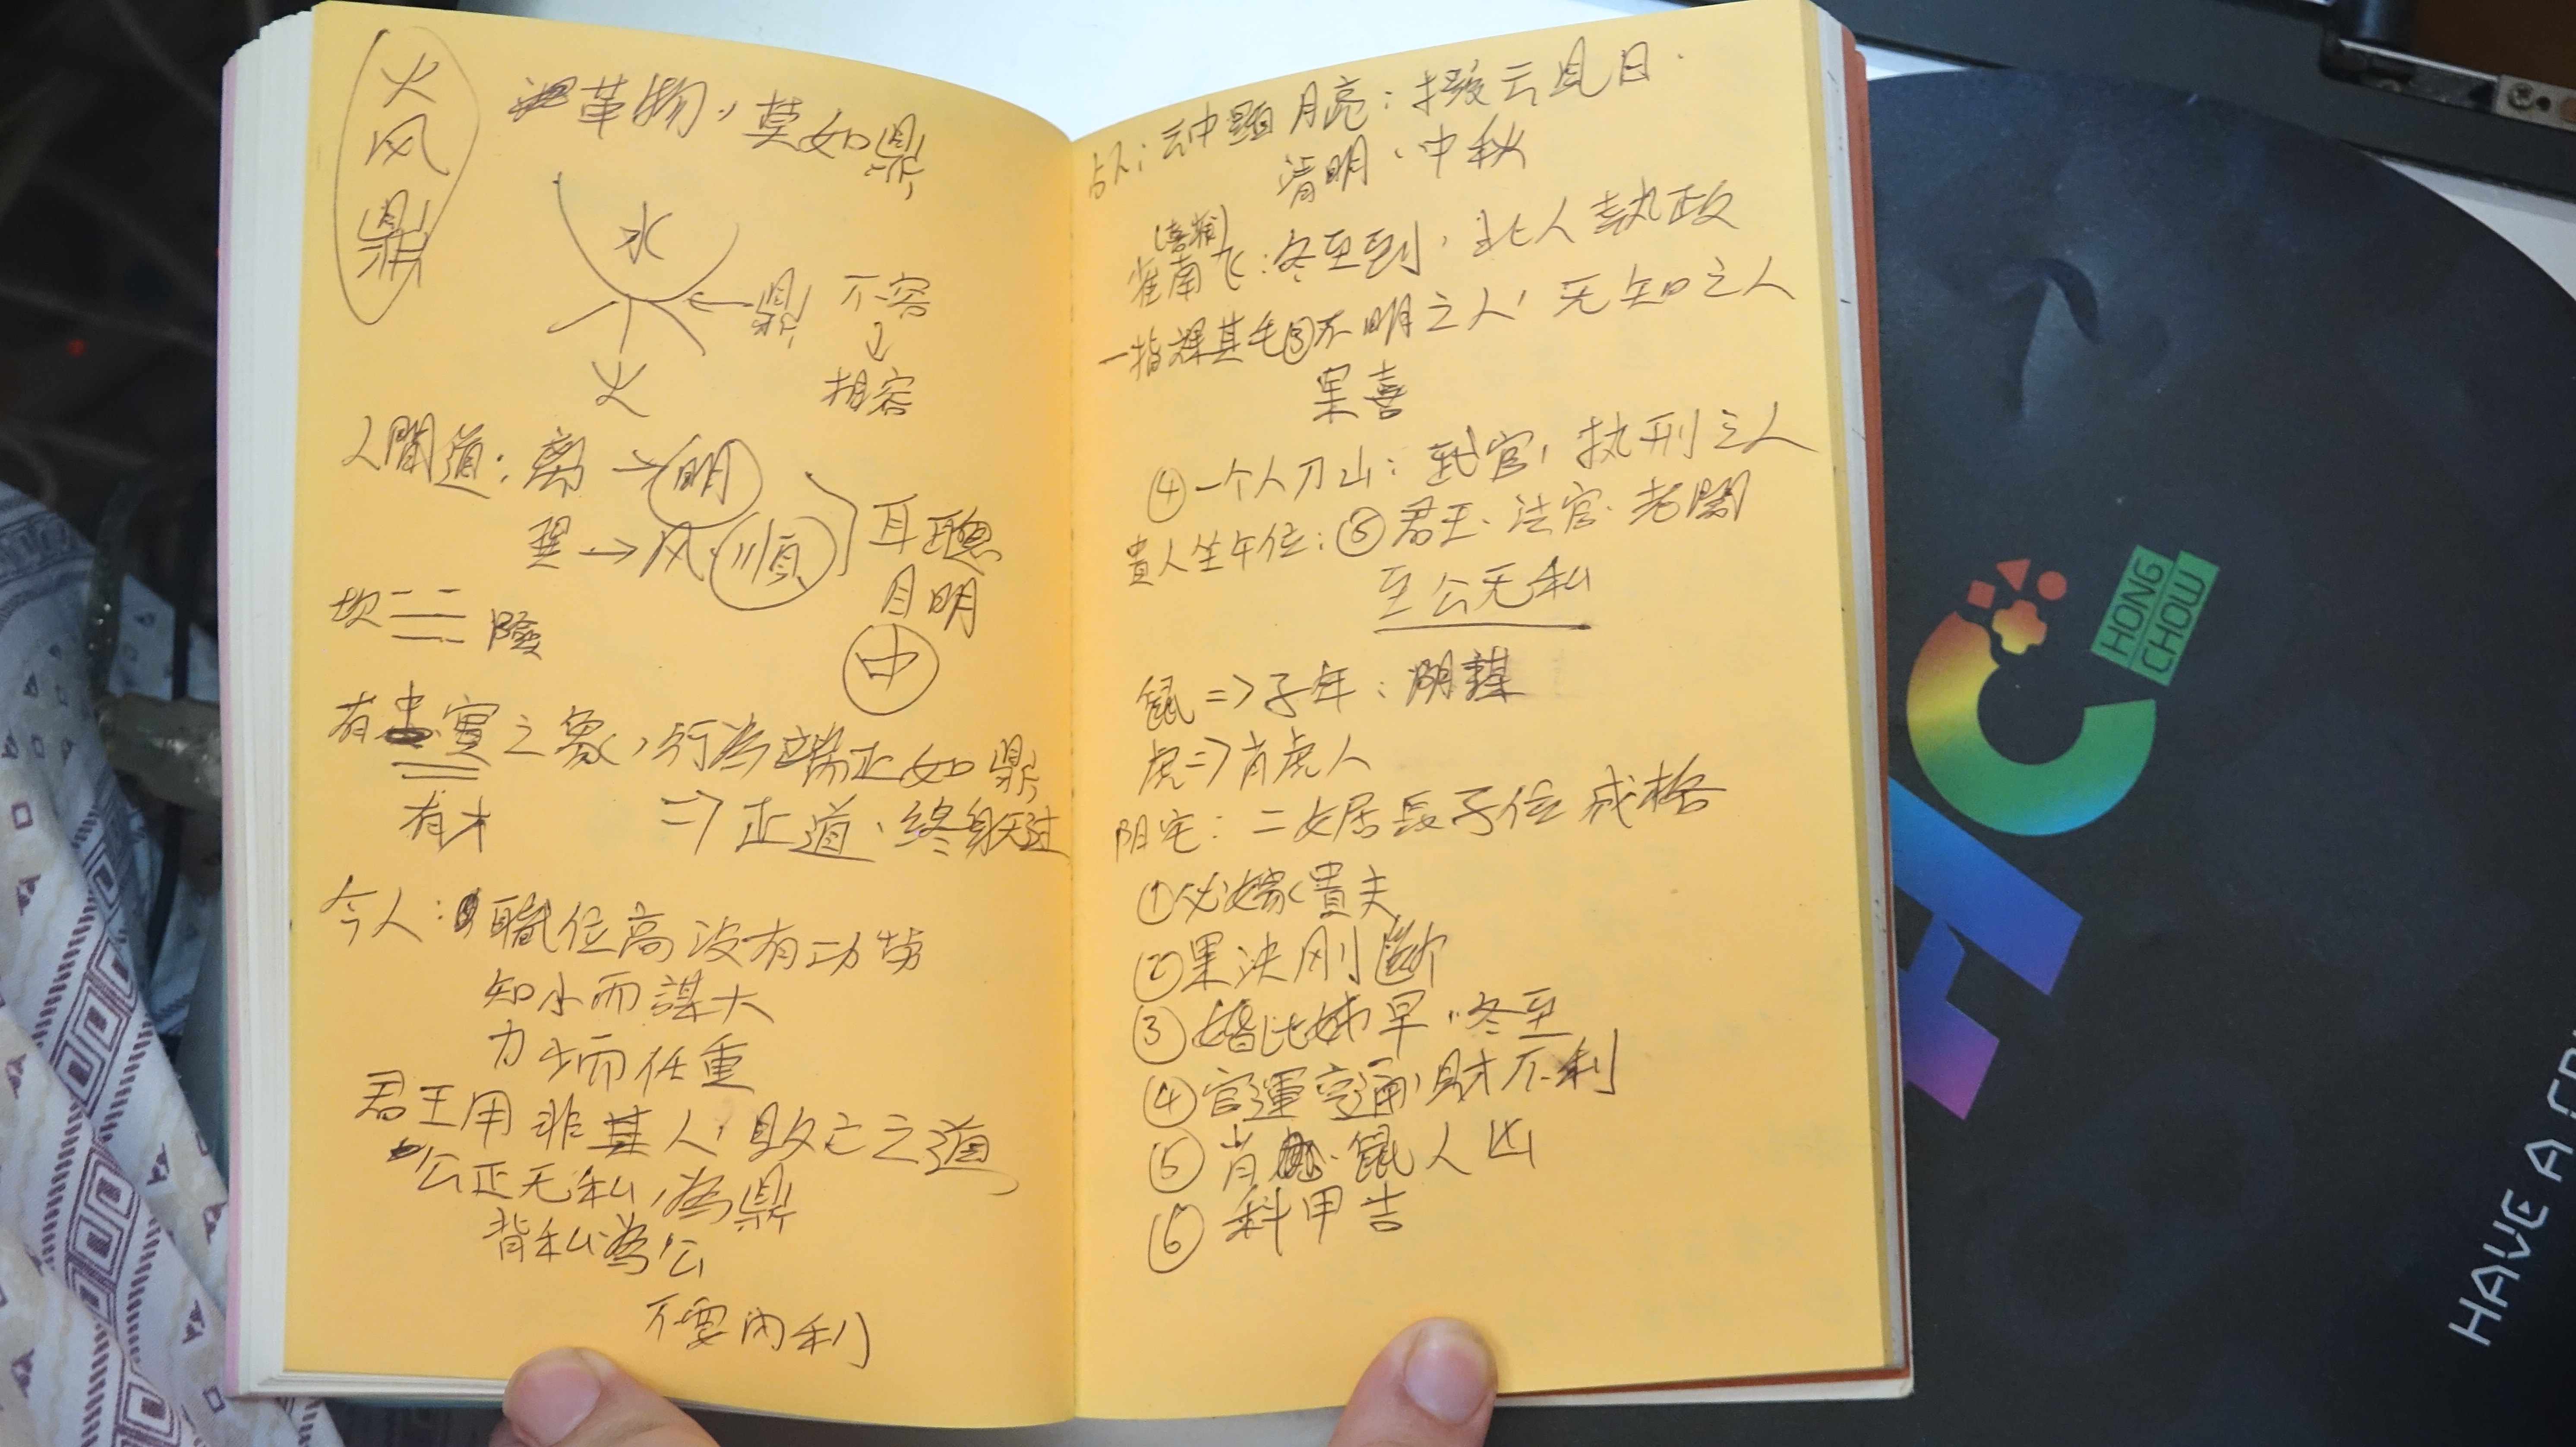 火风鼎
革物,莫如鼎
水
鼎 不容
↓
火 相容
人間道:离→明
巽→风·順 耳聰
目明
中
坎 險
有 實之象,行為端正如鼎
有才 => 正道、終身无过
今人:職位高没有功劳
知小而謀大
力少而任重
君王用非其人,敗亡之道
公正无私,為鼎
背私為公
不要内利
占人:云中顯月亮:撥云見日.
清明、中秋
雀南飞:冬至到,北人執政
一指 其毛③不明之人,无知之人
果喜
④一个人刀山:武官,执刑之人
貴人坐午位:⑤君王、法官、老闆
至公无私
鼠=>子年:陰謀
虎=>肖虎人
阴宅:二女居長子位成格
①必嫁貴夫
②果决刚断
③婚比姊早、冬至
④官運亨通,財不利
⑤肖 鼠人凶
⑥科甲吉
HONG
CHOW
HC